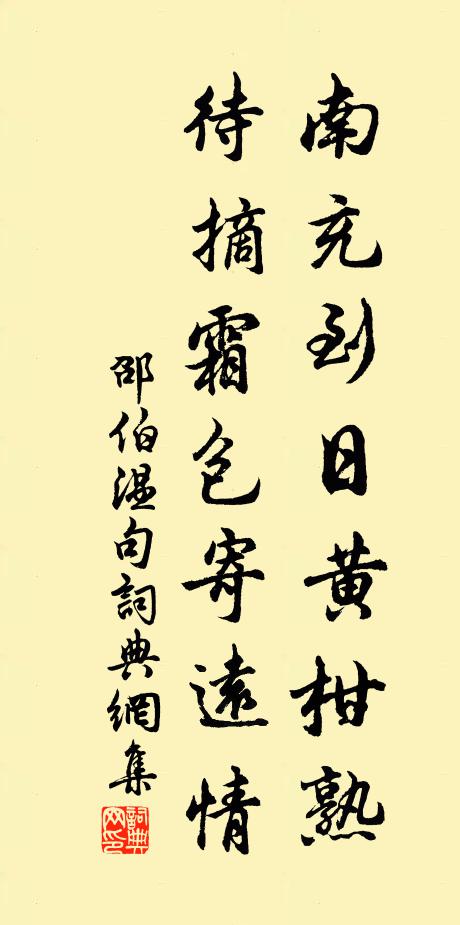 南充到日黄柑熟
待摘霜包寄遠情
邵伯温句詞典網集
詞典网印